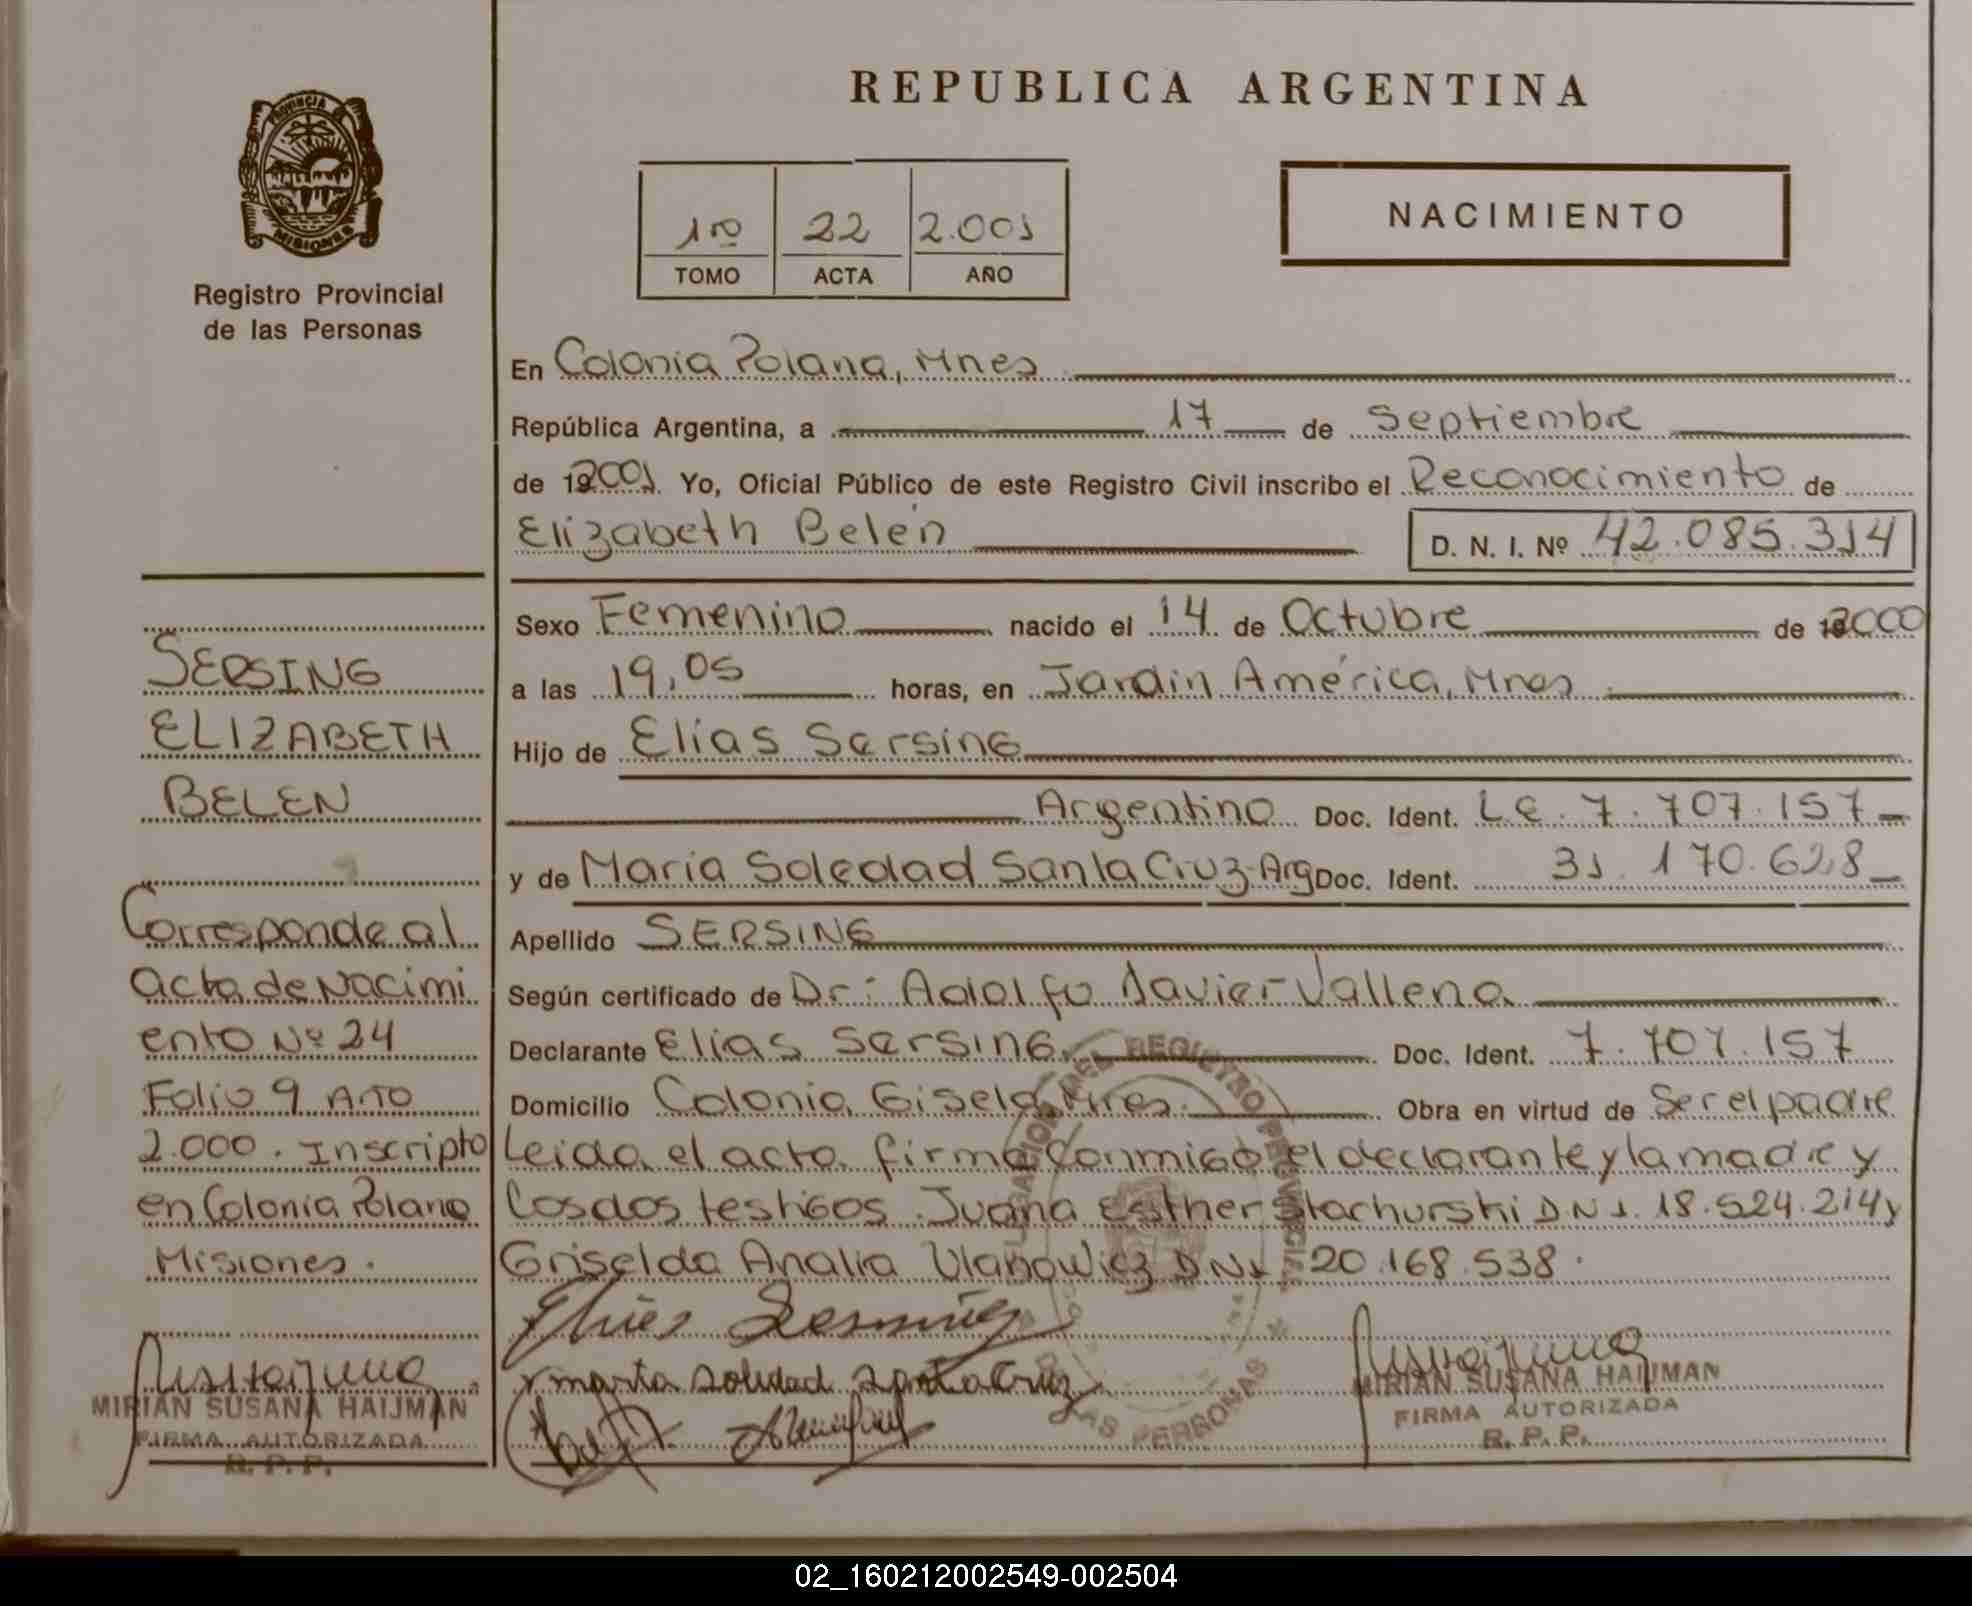 REPUBLICA ARGENTINA
PROVINCIA DE
MISIONES
Registro Provincial
de las Personas
1º 22 2.001
TOMO ACTA AÑO
NACIMIENTO
En Colonia Polana, Mnes
República Argentina, a 17 de Septiembre
de 2001 Yo, Oficial Público de este Registro Civil inscribo el Reconocimiento de
Elizabeth Belén D. N. I. Nº 42.085.314
Sexo Femenino nacido el 14 de Octubre de 2000
a las 19,05 horas, en Jardin América, Mnes
Hijo de Elías Sersing
Argentino Doc. Ident. LE. 7.707.157
y de María Soledad Santa Cruz-Arg Doc. Ident. 31.170.628
Apellido SERSING
Según certificado de Dr: Adolfo Javier Vallena
Declarante Elías Sersing. Doc. Ident. 7.707.157
Domicilio Colonia Gisela, Mnes. Obra en virtud de Ser el padre
Leida el acta firma conmigo el declarante y la madre y
Los dos testigos. Juana Esther Stachurski DNI. 18.524.214 y
Griselda Analia Ulanowicz DNI. 20.168.538.
SERSING
ELIZABETH
BELEN
Corresponde al
Acta de Nacimi
ento Nº 24
Folio 9 Año
2.000. Inscripto
en Colonia Polana
Misiones.
MIRIAN SUSANA HAIJMAN
FIRMA AUTORIZADA
R. P. P.
maria soledad santa Cruz
REGISTRO PROVINCIAL
DE LAS PERSONAS
MIRIAN SUSANA HAIJMAN
FIRMA AUTORIZADA
R. P. P.
02_160212002549-002504